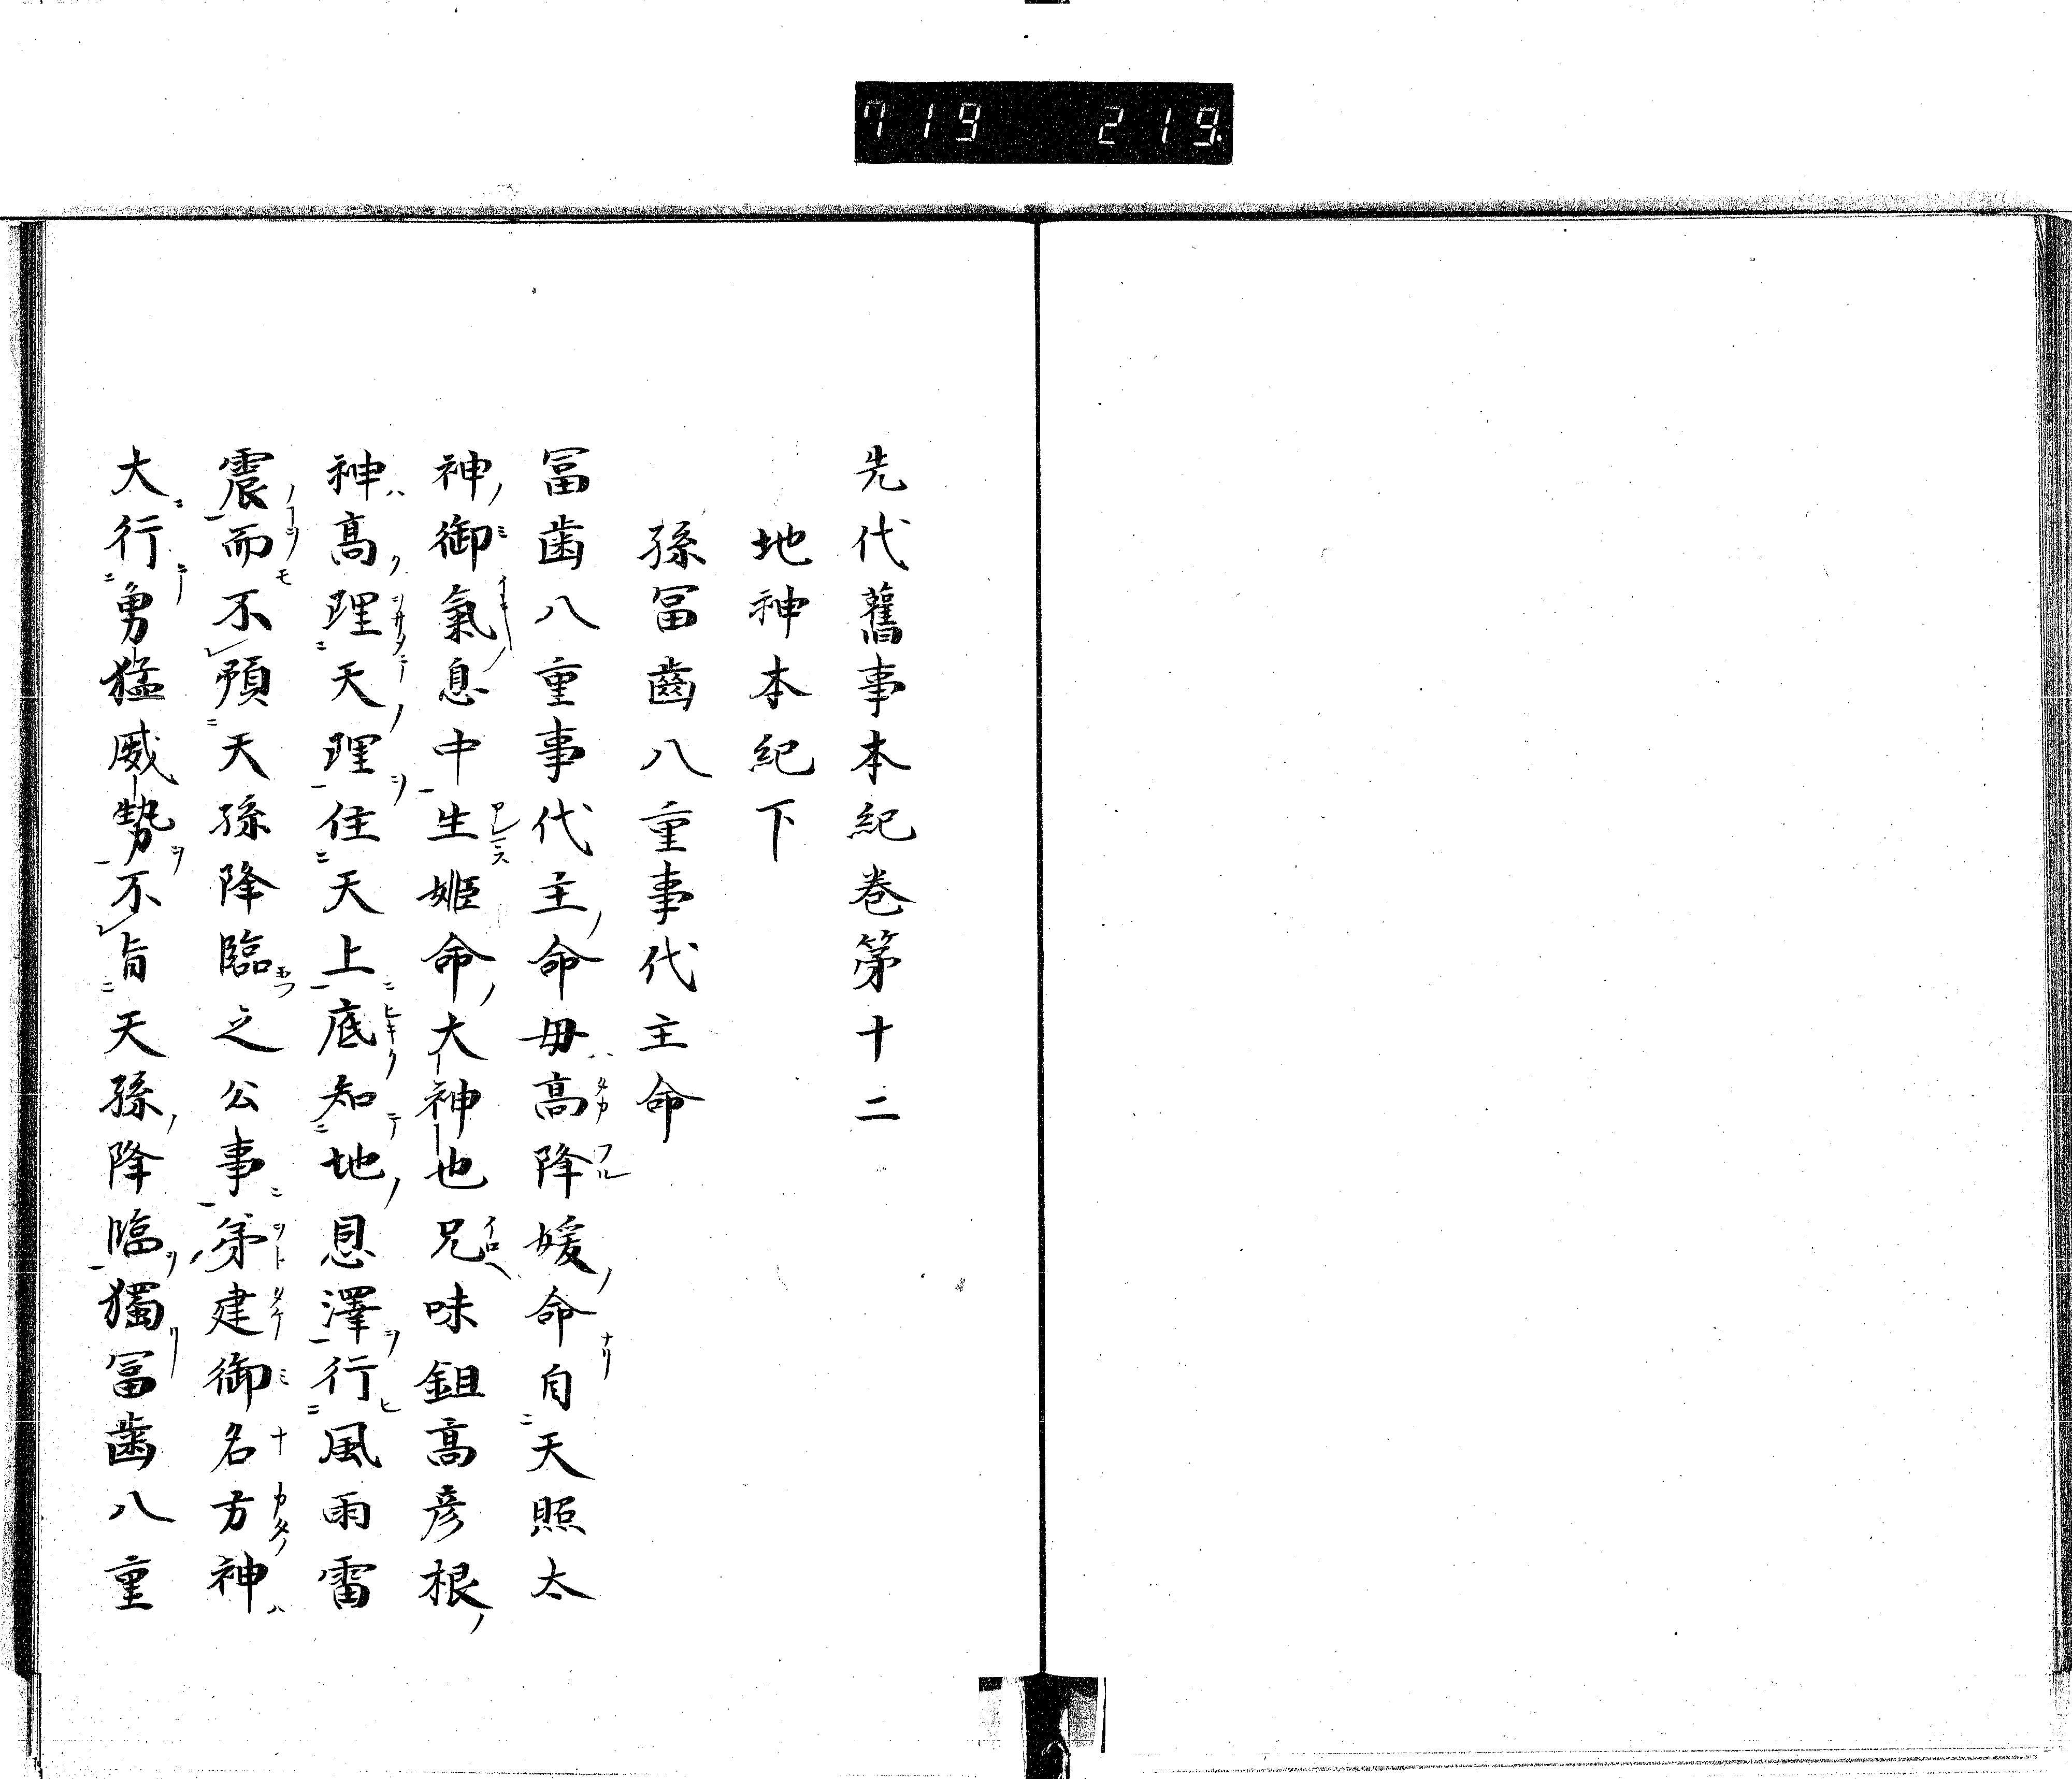 719 219.
先代舊事本紀巻第十二
地神本紀下
孫冨齒八重事代主命
冨歯八重事代主命毋高降媛命自天照太
神御氣息中生姫命大神也兄味鉏高彦根
神高理天理住天上底知地恩澤行風雨雷
震而不預天孫降臨之公事第建御名方神
大行勇猛威勢不旨天孫降臨獨冨歯八重